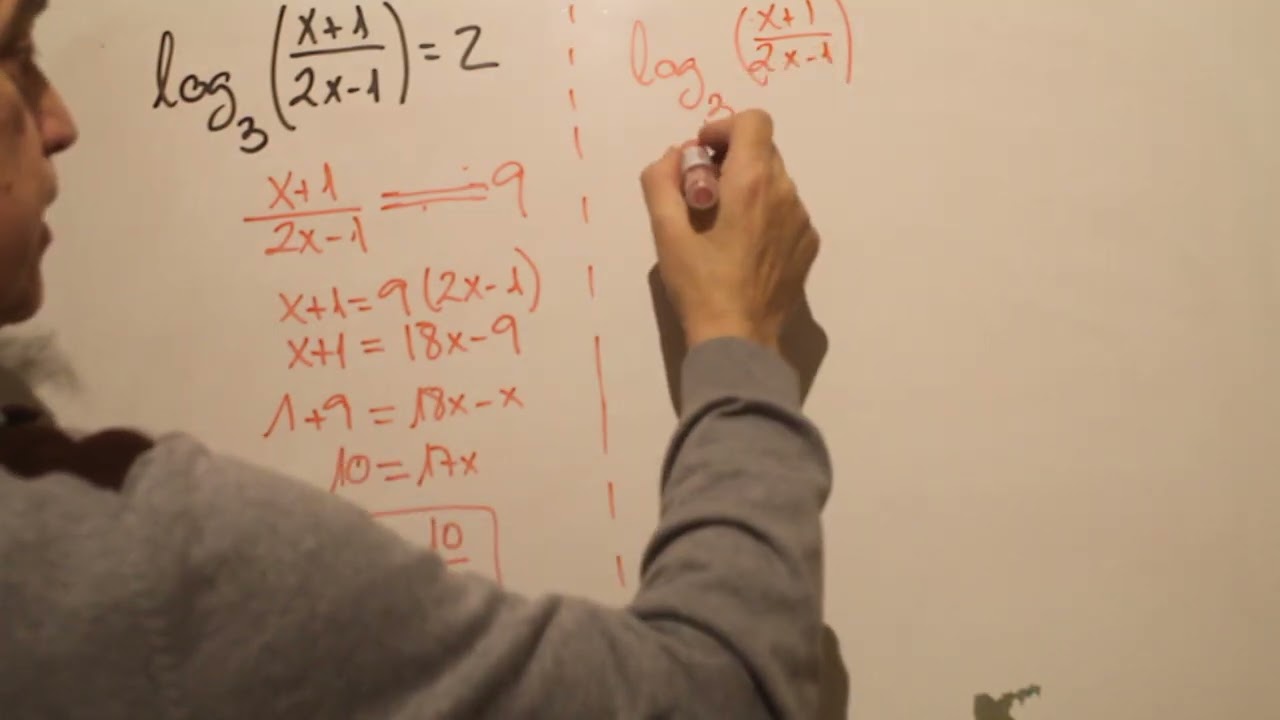 log₃((x+1)/(2x-1)) = 2
(x+1)/(2x-1) = 9
x+1 = 9(2x-1)
x+1 = 18x-9
1+9 = 18x-x
10 = 17x
10
log₃((x+1)/(2x-1))